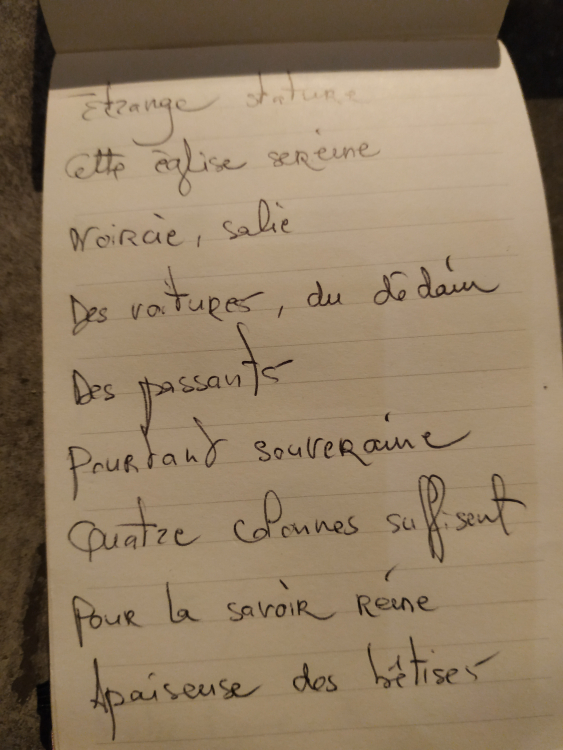 Étrange stature
Cette église sereine
Noircie, salie
Des voitures, du dédain
Des passants
Pourtant souveraine
Quatre colonnes suffisent
Pour la savoir reine
Apaiseuse des bêtises